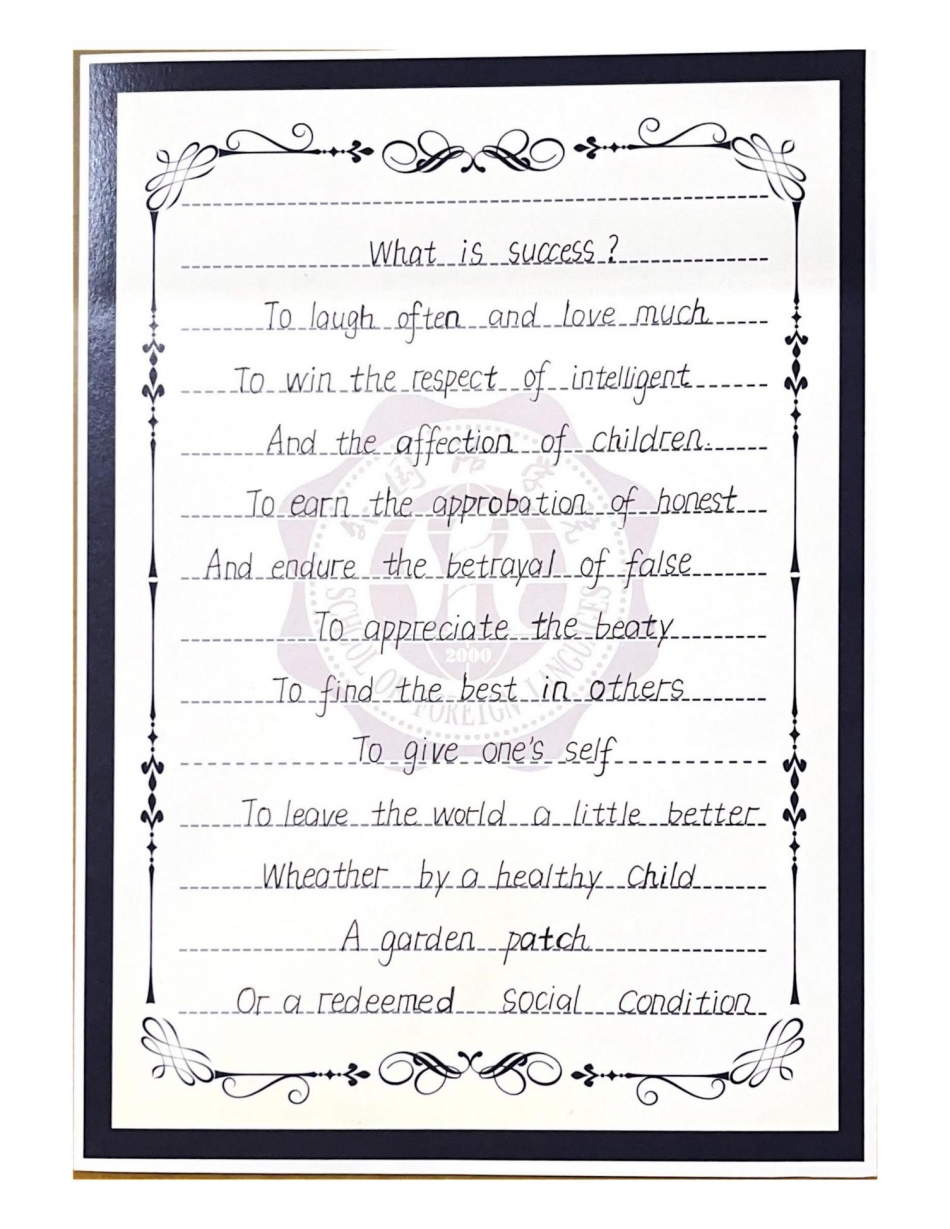 What is success?
To laugh often and love much
To win the respect of intelligent
And the affection of children.
To earn the approbation of honest
And endure the betrayal of false
To appreciate the beaty
To find the best in others
To give one's self
To leave the world a little better
Wheather by a healthy child
A garden patch
Or a redeemed social condition
外国语学院
SCHOOL OF FOREIGN LANGUAGES
2000